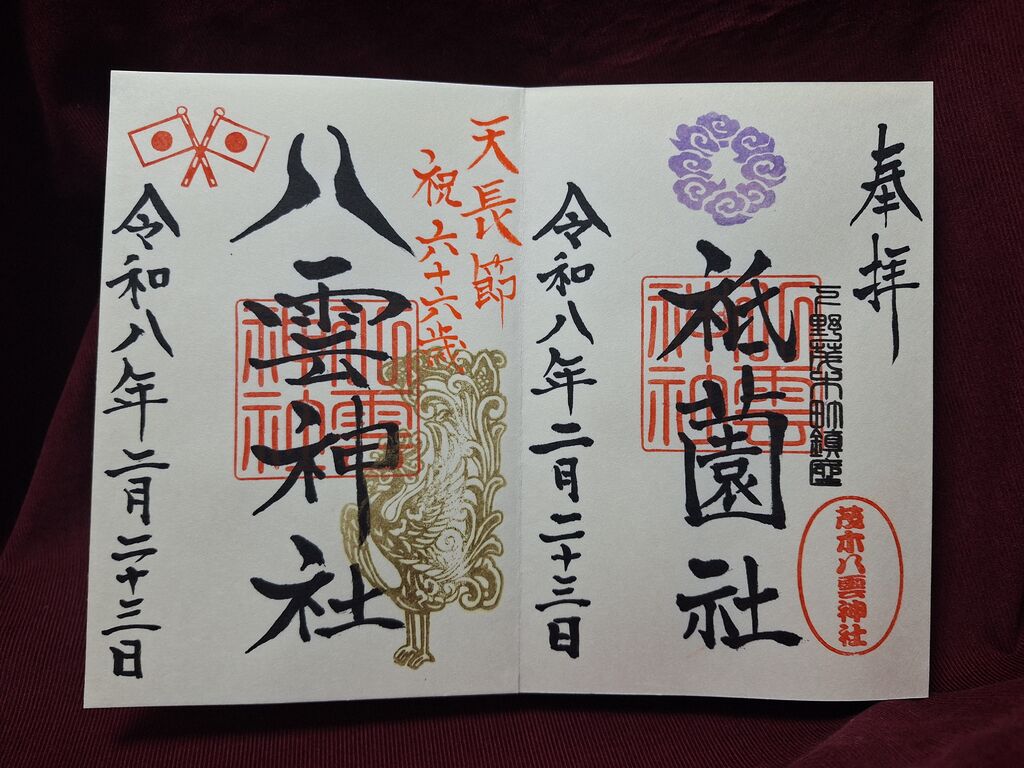 奉拝
下野茂木町鎮座
茂木八雲神社
祗園社
八雲神社
令和八年二月二十三日
天長節
祝六十六歳
八雲神社
八雲神社
令和八年二月二十三日